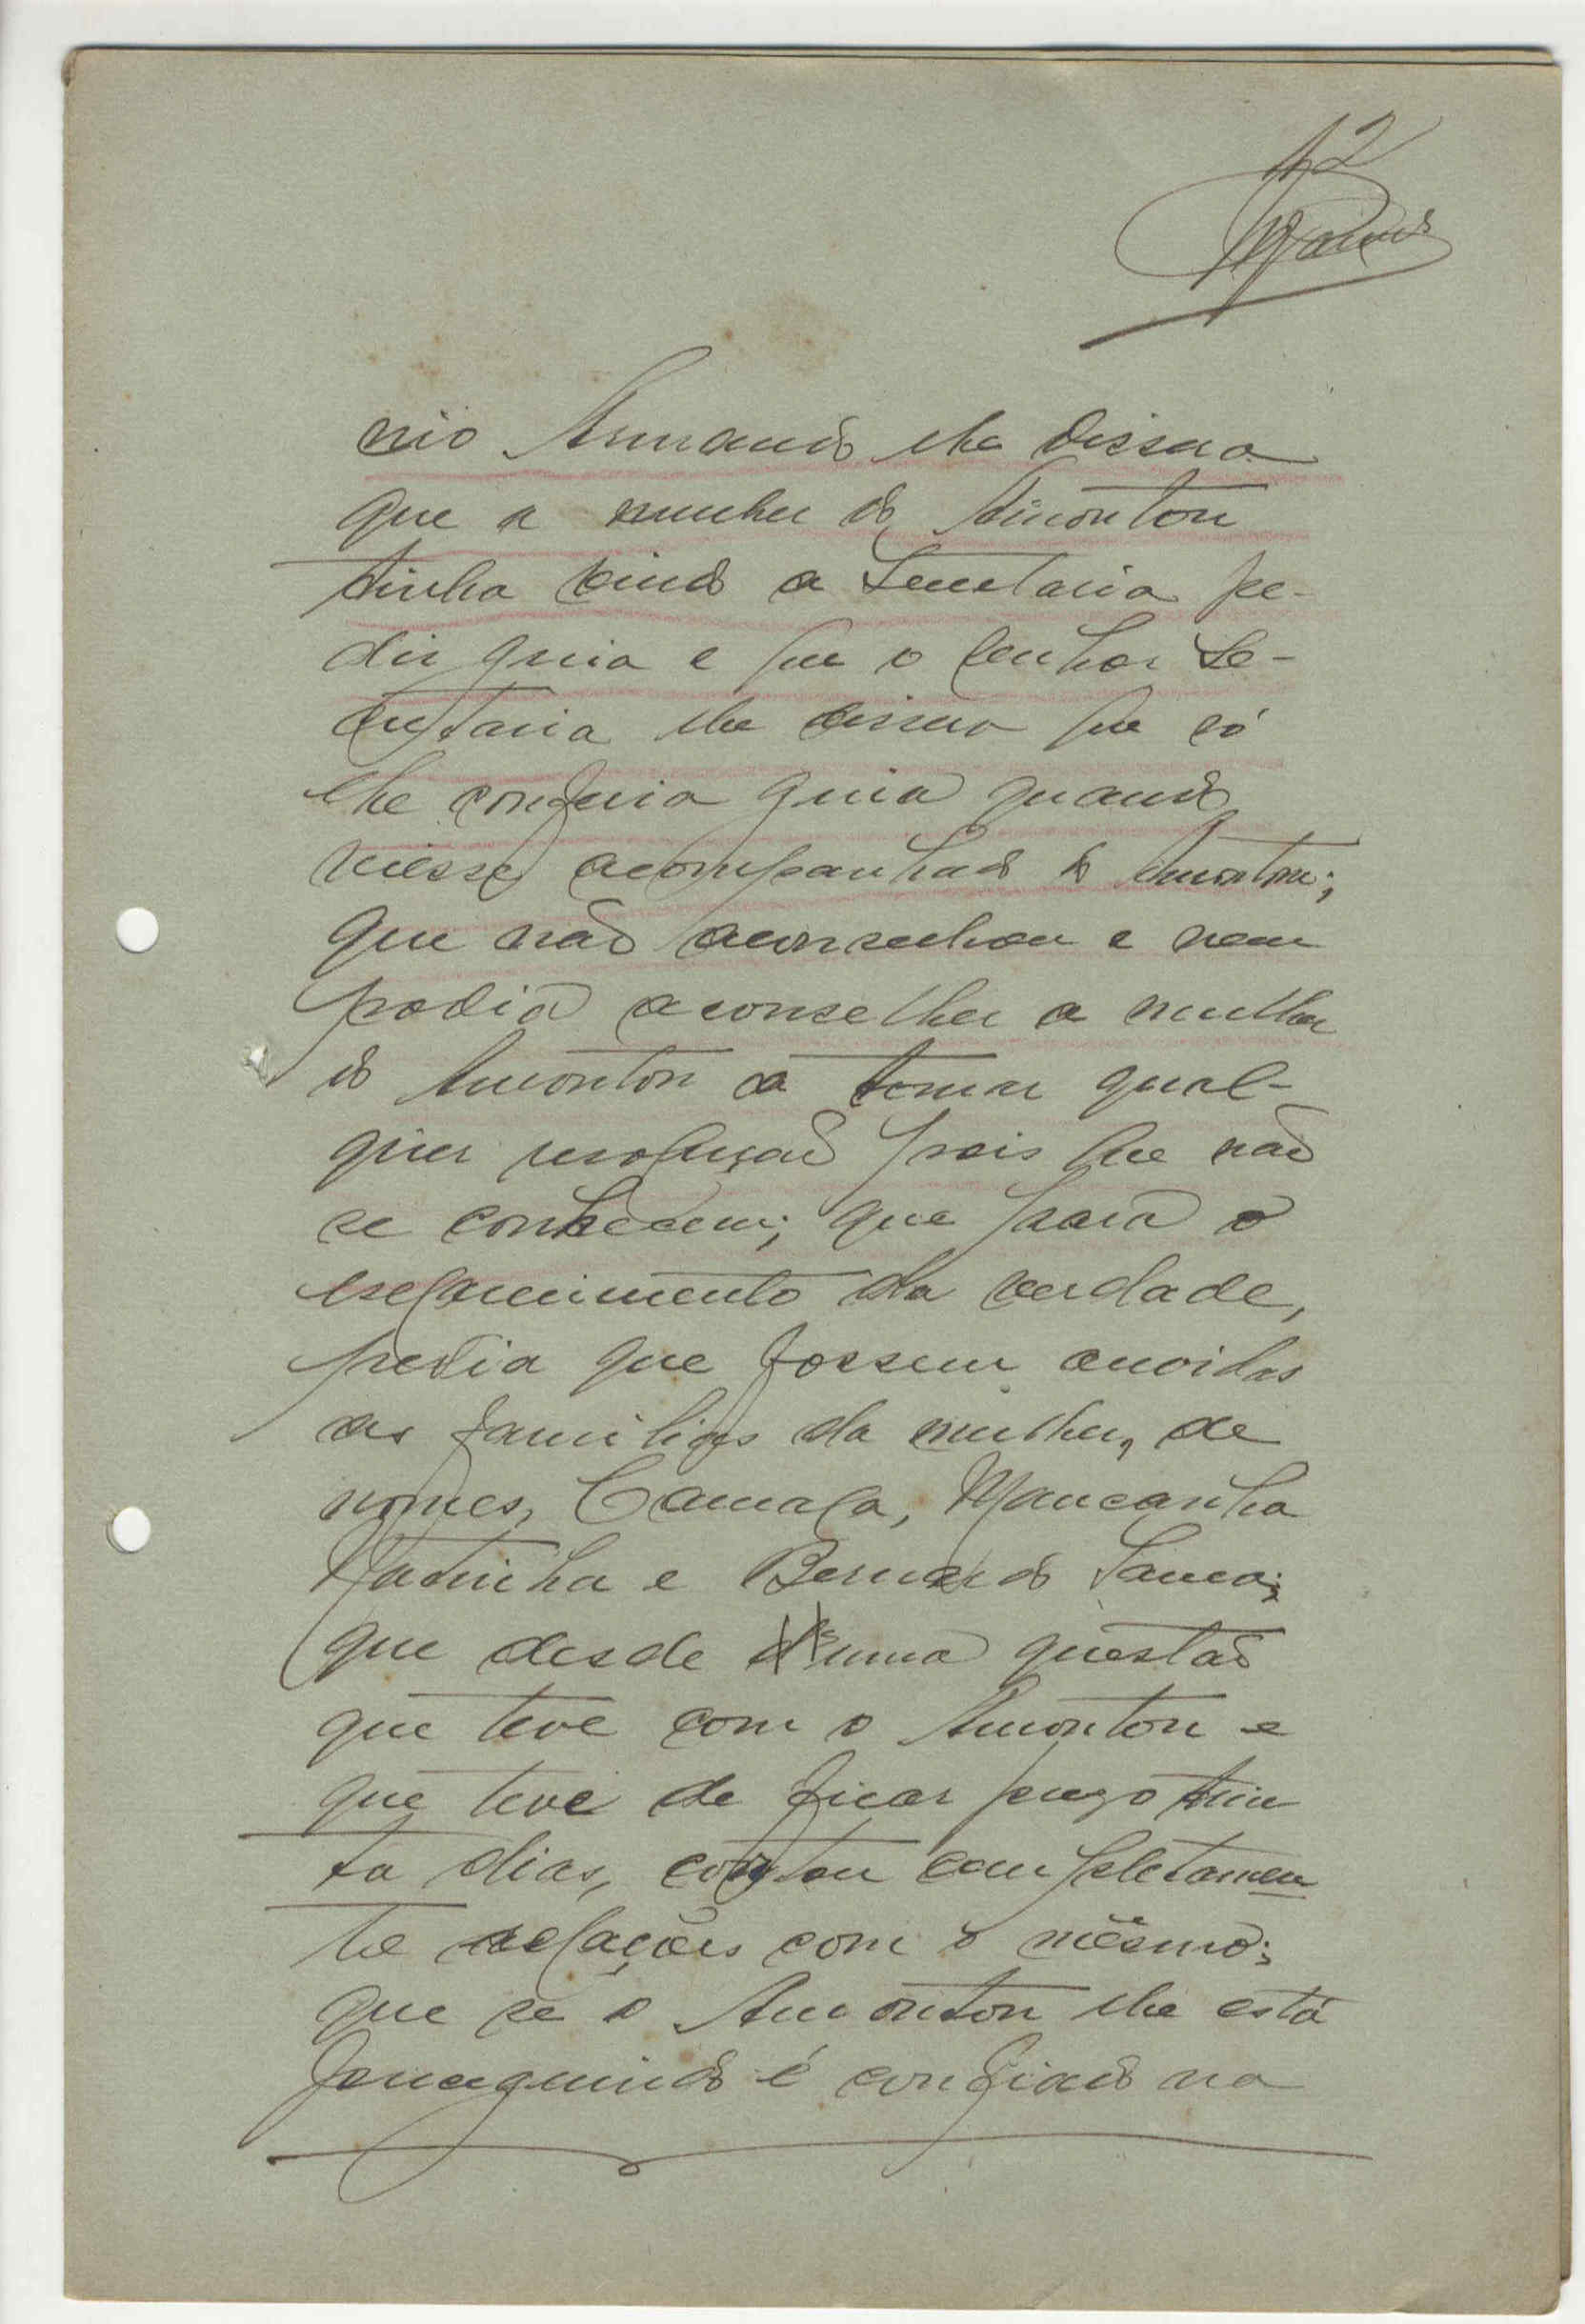 12
nio Armando lhe dissera
que a mulher do Amonton
tinha vindo a Secretaria pe-
dir guia e que o senhor Se-
cretario lhe dissera que só
lhe conferia guia quando
viesse acompanhado do Amonton;
que não aconselhou e nem
podia aconselhar a mulher
do Amonton a tomar qual-
quer resolução pois que não
se conhecem; que para o
esclarecimento da verdade,
pedia que fossem ouvidas
as familias da mulher, de
nomes, Camala, Mancanha
Natinha e Bernardo Sanca;
que desde uma questão
que teve com o Amonton e
que teve de ficar preso trin
ta dias, cortou completamen
te relações com o mesmo;
que se o Amonton lhe está
perseguindo é confiado na